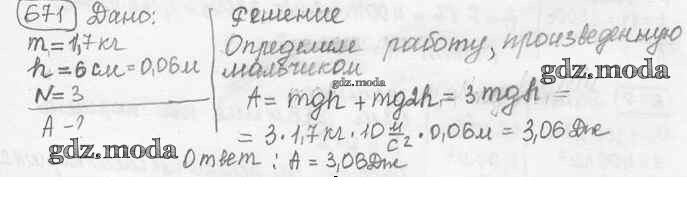 671 Дано: Решение
m = 1,7 кг Определим работу, произведенную
h = 6 см = 0,06 м мальчиком
gdz.moda
gdz.moda
N = 3 A = mgh + mg2h = 3mgh =
A - ? = 3 · 1,7 кг · 10 м/с² · 0,06 м = 3,06 Дж
gdz.moda Ответ: A = 3,06 Дж